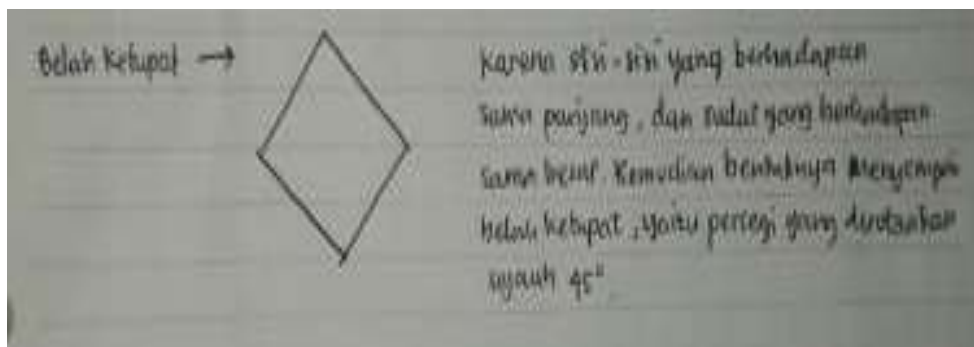 Belah Ketupat →
Karena sisi-sisi yang berhadapan
sama panjang, dan sudut yang berhadapan
sama besar. Kemudian bentuknya menyerupai
belah ketupat, yaitu persegi yang diputarkan
sejauh 45°